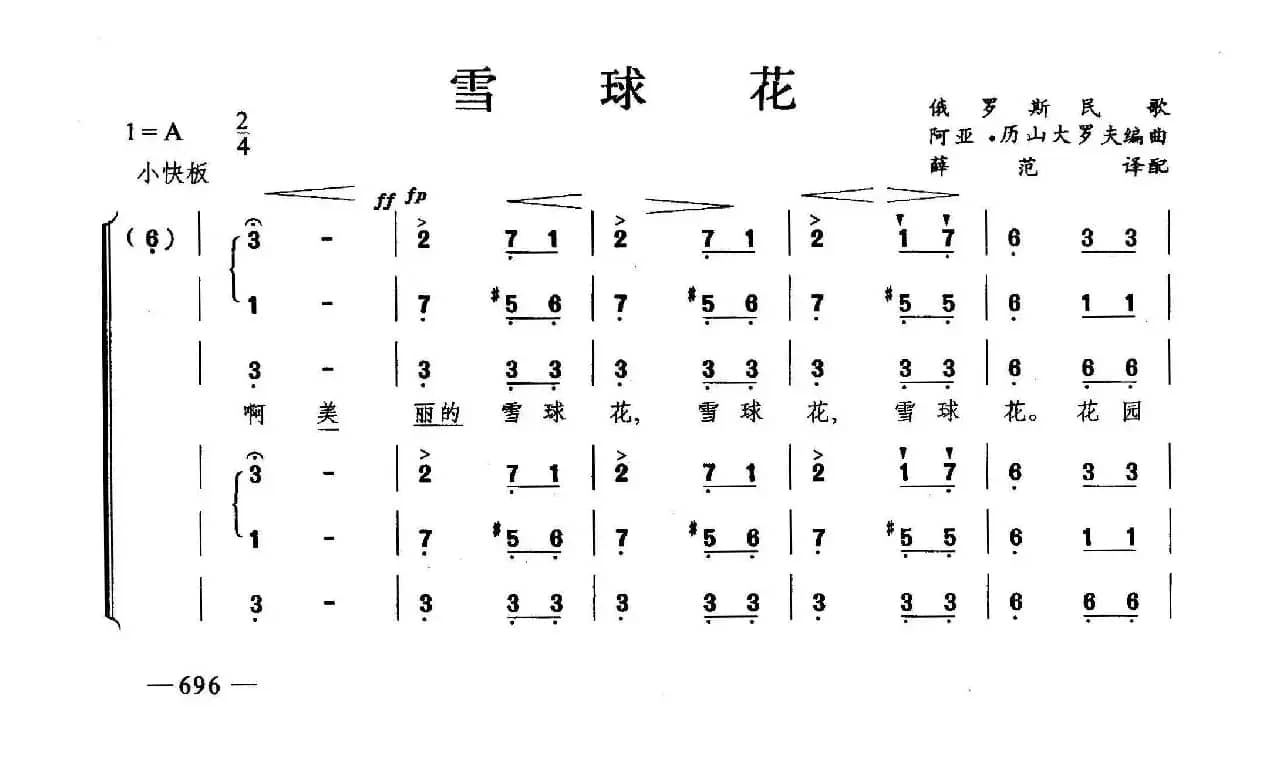 雪 球 花
俄 罗 斯 民 歌
1=A 2/4
阿亚·历山大罗夫编曲
小快板
薛 范 译配
ff fp
(6) | 3 - | 2 7 1 | 2 7 1 | 2 1 7 | 6 3 3 |
1 - | 7 #5 6 | 7 #5 6 | 7 #5 5 | 6 1 1 |
3 - | 3 3 3 | 3 3 3 | 3 3 3 | 6 6 6 |
啊 美 丽的 雪 球 花, 雪 球 花, 雪 球 花。花 园
3 - | 2 7 1 | 2 7 1 | 2 1 7 | 6 3 3 |
1 - | 7 #5 6 | 7 #5 6 | 7 #5 5 | 6 1 1 |
3 - | 3 3 3 | 3 3 3 | 3 3 3 | 6 6 6 |
—696—